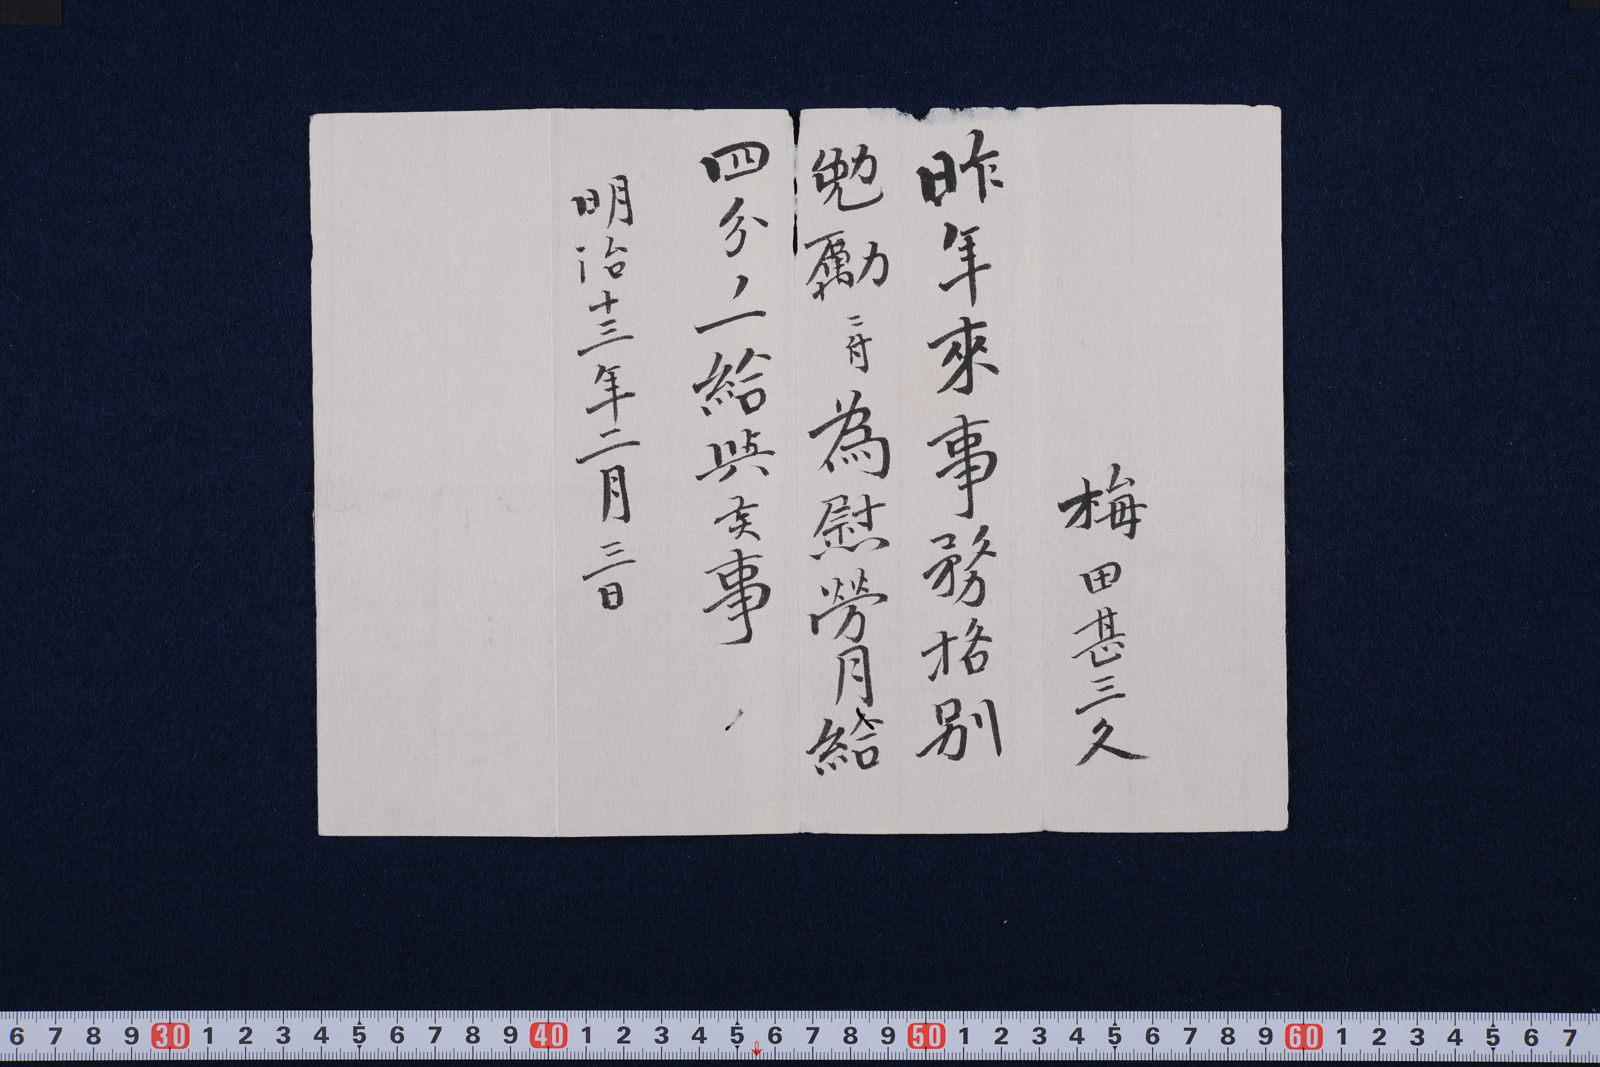 梅田甚三久
昨年来事務格別
勉勵ニ付為慰勞月給
四分ノ一給與候事
明治十三年二月三日
6 7 8 9 30 1 2 3 4 5 6 7 8 9 40 1 2 3 4 5 6 7 8 9 50 1 2 3 4 5 6 7 8 9 60 1 2 3 4 5 6 7